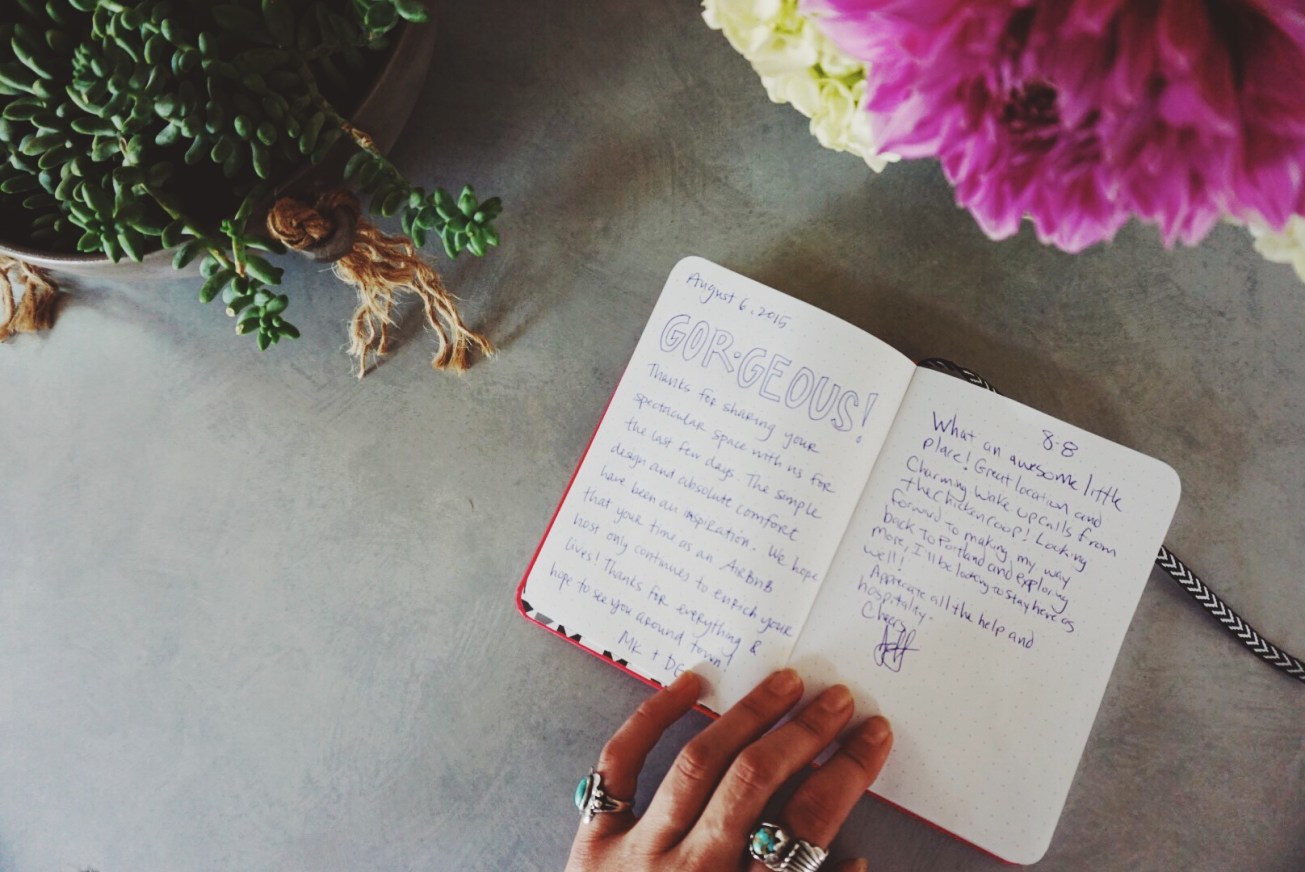 August 6, 2015
GOR·GEOUS!
Thanks for sharing your
spectacular space with us for
the last few days. The simple
design and absolute comfort
have been an inspiration. We hope
that your time as an AirBnB
host only continues to enrich your
lives! Thanks for everything &
hope to see you around town!
MK + DG
8-8
What an awesome little
place! Great location and
Charming wake up calls from
the chicken coop! Looking
forward to making my way
back To Portland and exploring
more, I'll be looking to stay here as
well!
Appreciate all the help and
hospitality-
Cheers
Jeff